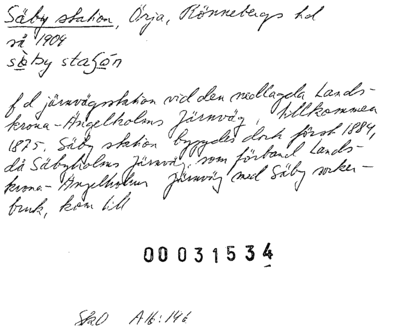 Säby station, Örja, Rönnebergs hd
så 1904
f d järnvägsstation vid den nedlagda Lands-
krona-Ängelholms Järnväg, tillkommen
1875. Säby station byggdes dock först 1884,
då Säbyholms Järnväg, som förband Lands-
krona-Ängelholms Järnväg med Säby socker-
bruk, kom till
00031534
SkO A16:146